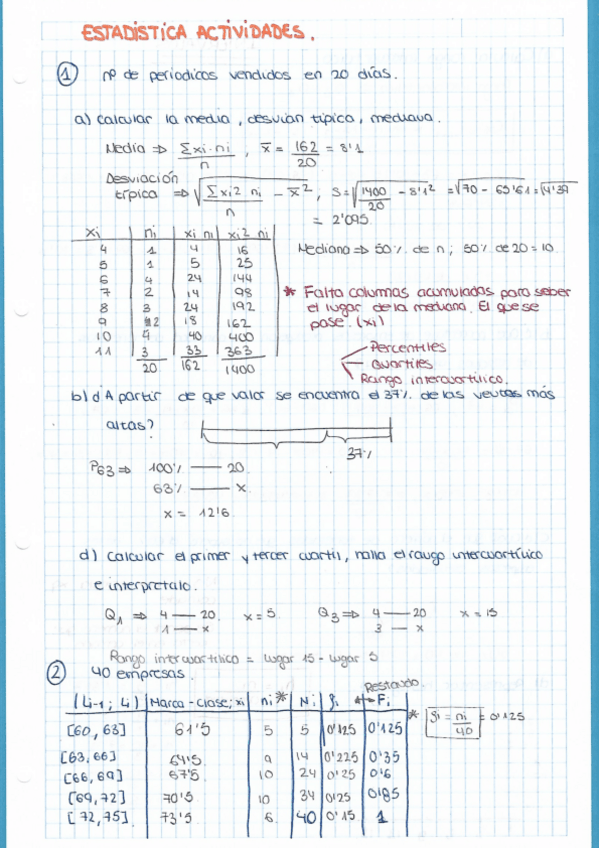 ESTADISTICA ACTIVIDADES.
① nº de periodicos vendidos en 20 días.
a) calcular la media, desvian tipica, mediana.
Media ⇒ Σxi·ni / n , x̄ = 162/20 = 8'1
Desviación típica ⇒ √(Σxi2 ni / n − x̄²) , S = √(1400/20 − 8'1²) = √(70 − 65'61) = √(4'39
= 2'095
xi | ni | xi ni | xi2 ni
4 | 1 | 4 | 16
5 | 1 | 5 | 25
6 | 4 | 24 | 144
7 | 2 | 14 | 98
8 | 3 | 24 | 192
9 | 2 | 18 | 162
10 | 4 | 40 | 400
11 | 3 | 33 | 363
20 | 162 | 1400
Mediana ⇒ 50% de n; 50% de 20 = 10.
* Falta columnas acumuladas para saber
el lugar de la mediana. El que se
pase. (xi)
Percentiles
Quartiles
Rango intercuartilico.
b) d A partir de que valor se encuentra el 37% de las ventas más
altas?
37%
P63 ⇒ 100% — 20
63% — x
x = 12'6
d) Calcular el primer y tercer cuartil, halla el rango intercuartílico
e interpretalo.
Q1 ⇒ 4 — 20
1 — x
x = 5
Q3 ⇒ 4 — 20
3 — x
x = 15
Rango intercuartilico = lugar 15 - lugar 5
② 40 empresas.
Restando.
(Li-1; Li) | Marca-clase; xi | ni * | Ni | fi | Fi
[60, 63] | 61'5 | 5 | 5 | 0'125 | 0'125
[63, 66] | 64'5 | 9 | 14 | 0'225 | 0'35
[66, 69] | 67'5 | 10 | 24 | 0'25 | 0'6
[69, 72] | 70'5 | 10 | 34 | 0'25 | 0'85
[72, 75] | 73'5 | 6 | 40 | 0'15 | 1
* fi = ni/40 = 0'125